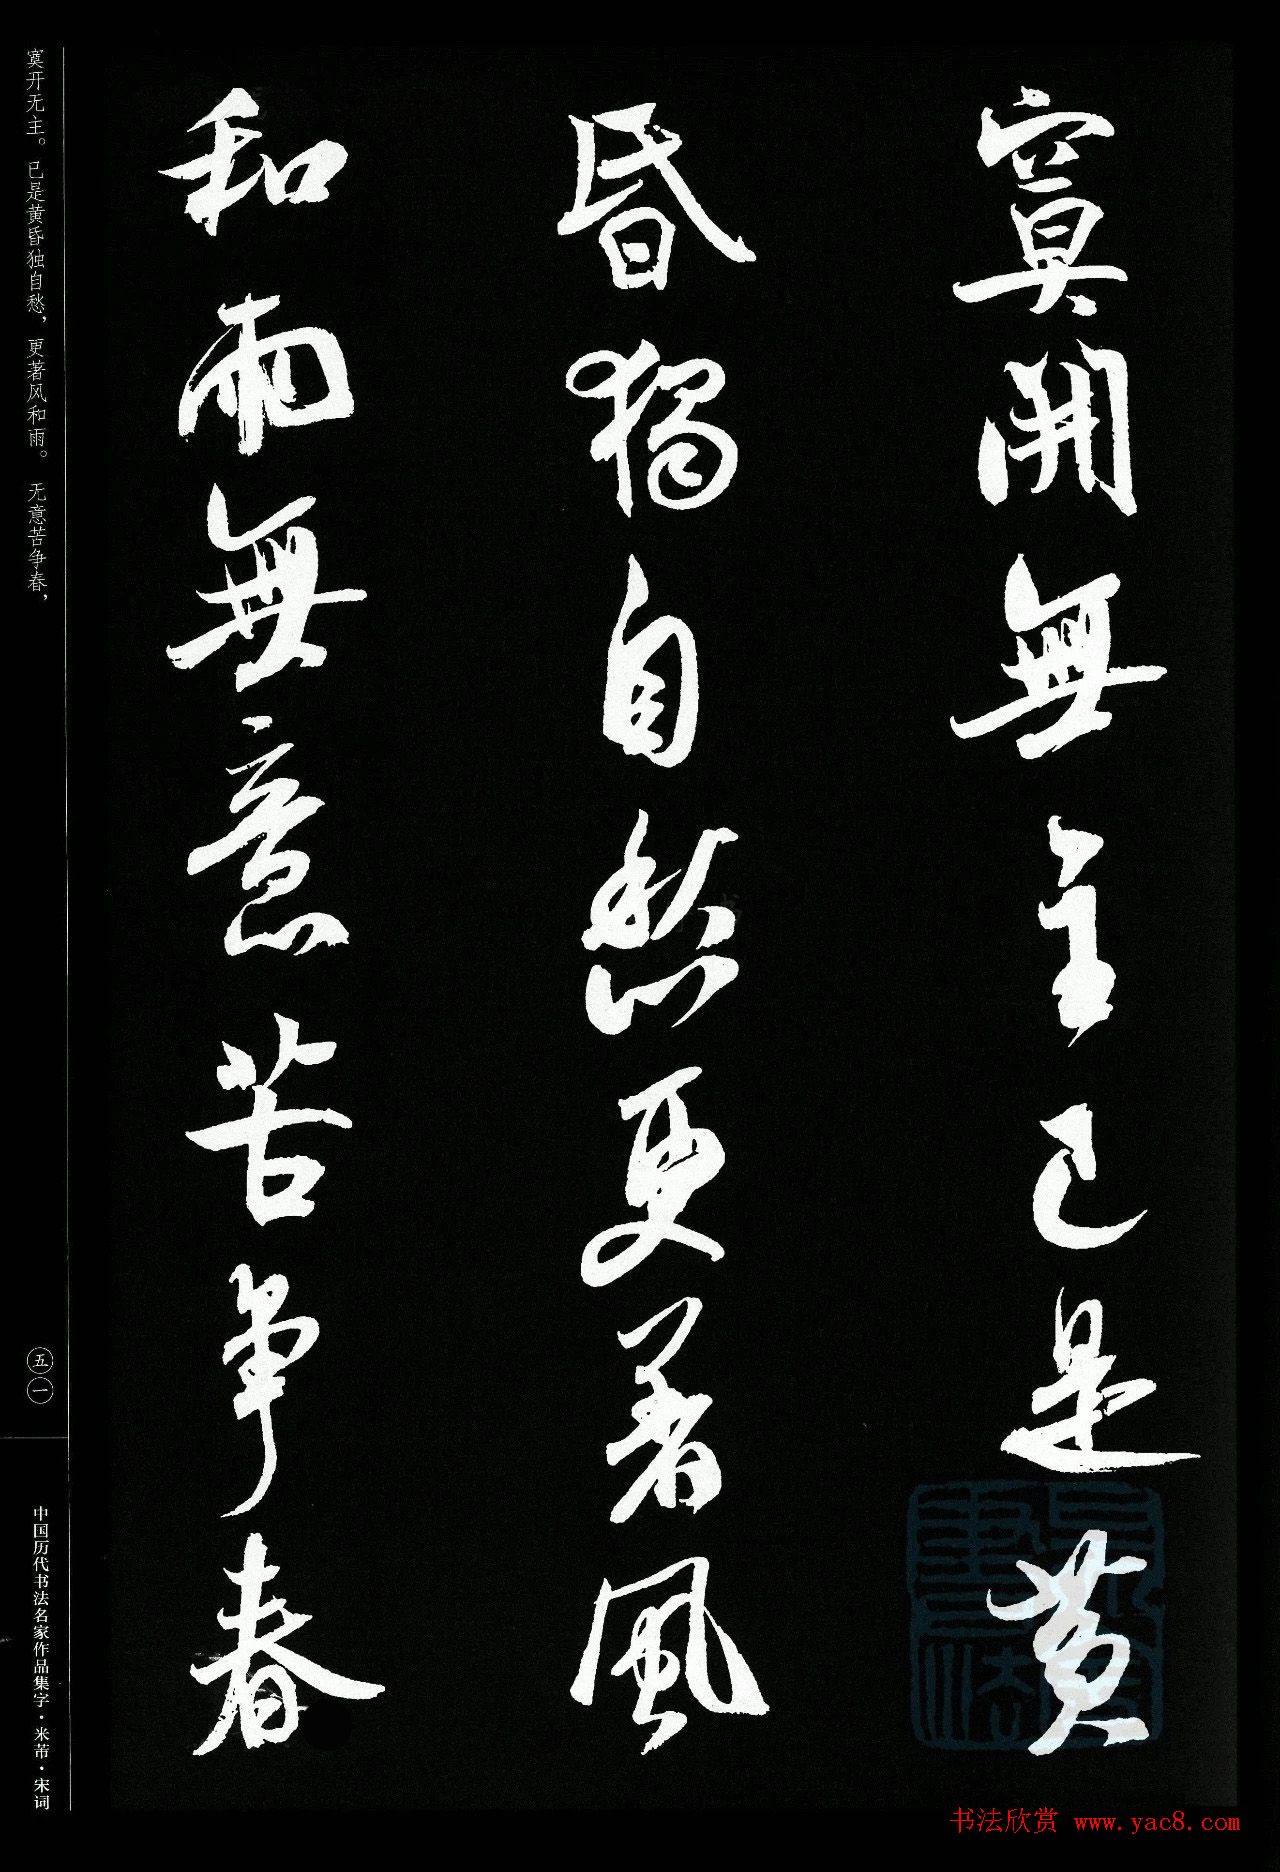 寞開無主已是黄
昏獨自愁更著風
和雨無意苦争春
寞开无主。已是黄昏独自愁，更著风和雨。无意苦争春，
五一
中国历代书法名家作品集字·米芾·宋词
书法欣赏 www.yac8.com